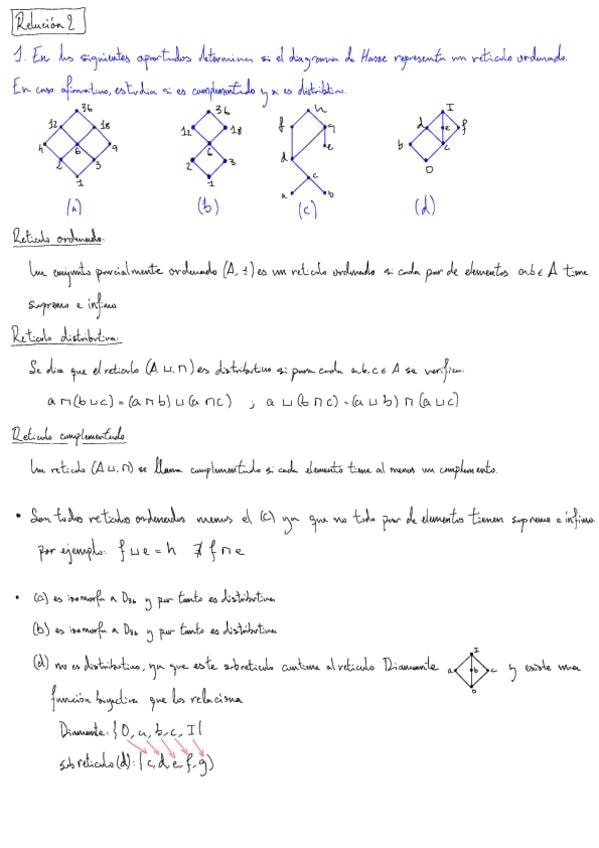 Relación 2
1. En los siguientes apartados determina si el diagrama de Hasse representa un retículo ordenado.
En caso afirmativo, estudia si es complementado y si es distributivo.
36 36 h I
12 18 12 18 f g d e f
4 6 9 6 e b c
2 3 2 3 d c 0
1 1 a b
(a) (b) (c) (d)
Retículo ordenado:
Un conjunto parcialmente ordenado (A, ≤) es un retículo ordenado si cada par de elementos a,b ∈ A tiene
supremo e ínfimo
Retículo distributivo:
Se dice que el retículo (A ⊔, ⊓) es distributivo si para cada a,b,c ∈ A se verifica:
a ⊓ (b ⊔ c) = (a ⊓ b) ⊔ (a ⊓ c) , a ⊔ (b ⊓ c) = (a ⊔ b) ⊓ (a ⊔ c)
Retículo complementado
Un retículo (A ⊔, ⊓) se llama complementado si cada elemento tiene al menos un complemento.
• Son todos retículos ordenados menos el (c) ya que no todo par de elementos tienen supremo e ínfimo.
por ejemplo: f ⊔ e = h ∄ f ⊓ e
• (a) es isomorfa a D36 y por tanto es distributiva
(b) es isomorfa a D36 y por tanto es distributiva
(d) no es distributivo, ya que este subretículo contiene al retículo Diamante I a b c 0 y existe una
función biyectiva que los relaciona
Diamante: {0, a, b, c, I}
subretículo (d): {c, d, e, f, g}